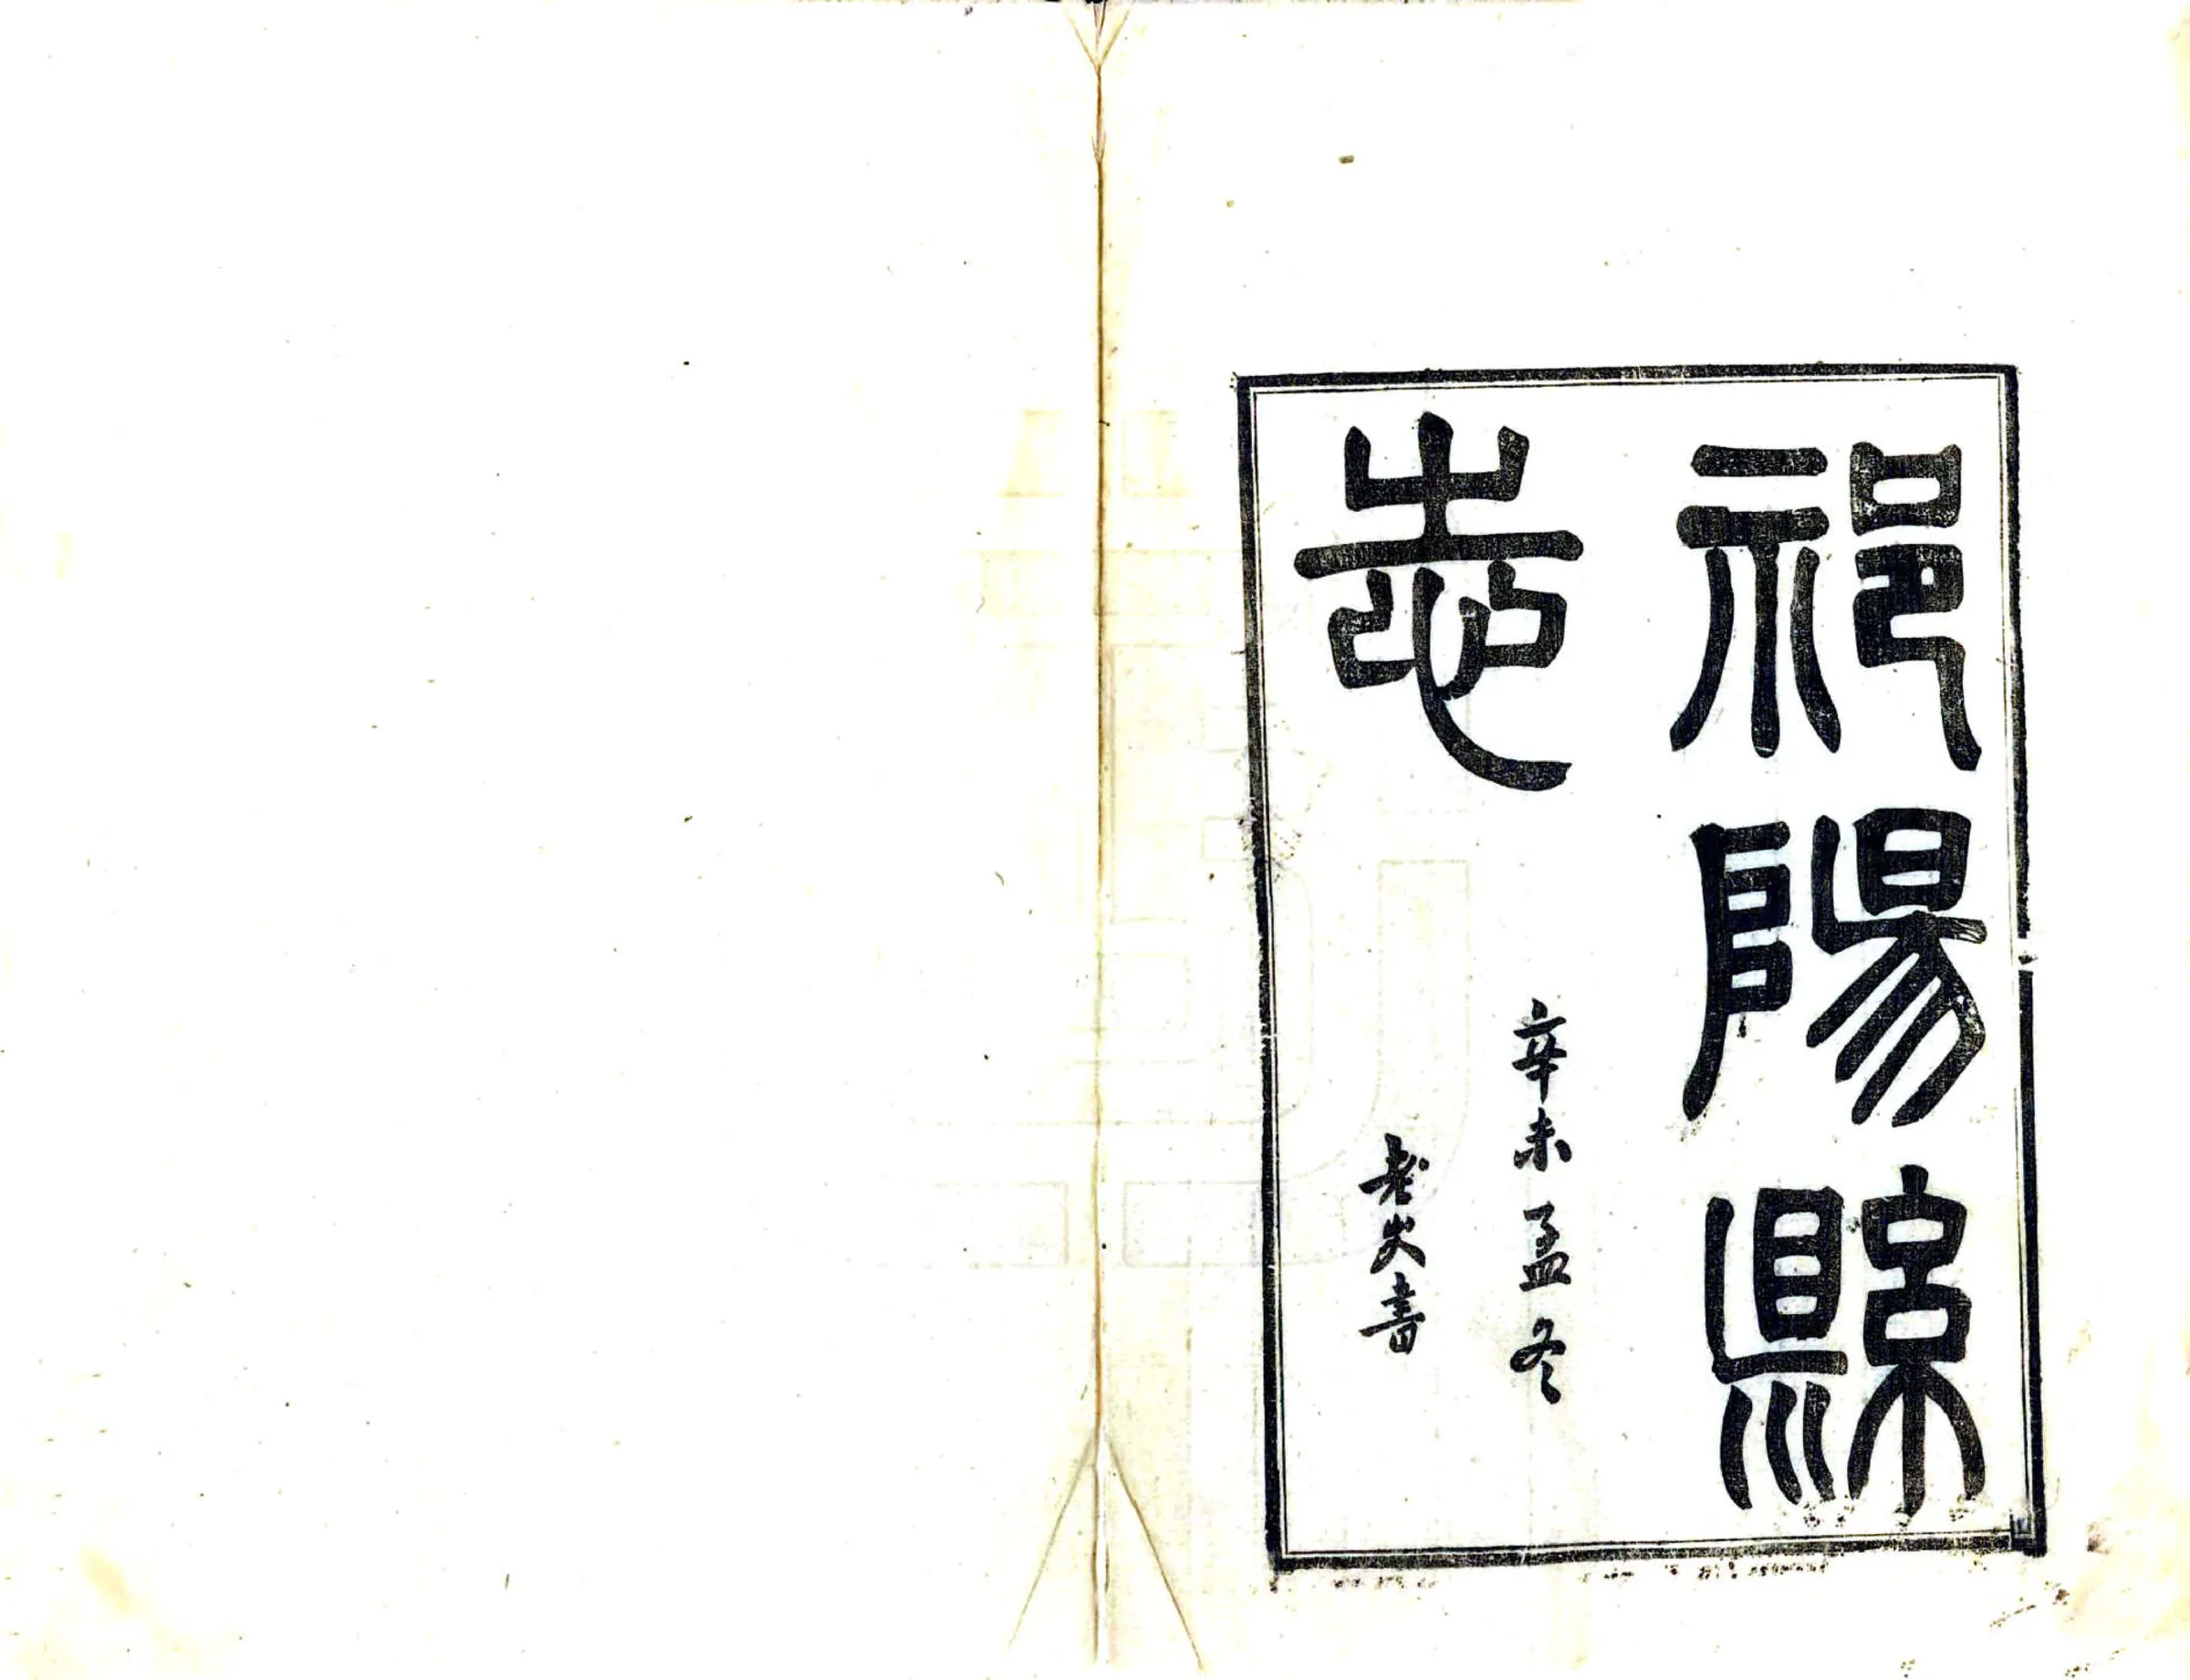 祁陽縣
志
辛未孟冬
老火書